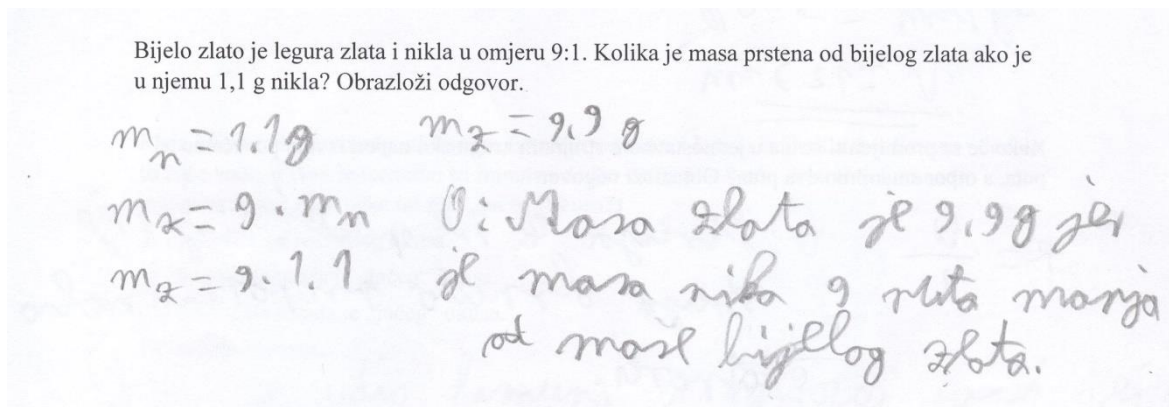 Bijelo zlato je legura zlata i nikla u omjeru 9:1. Kolika je masa prstena od bijelog zlata ako je
u njemu 1,1 g nikla? Obrazloži odgovor.
m_n = 1.1g m_z = 9,9 g
m_z = 9 · m_n O: Masa zlata je 9,9g jer
m_z = 9 · 1.1 je masa nikla 9 puta manja
od mase bijelog zlata.